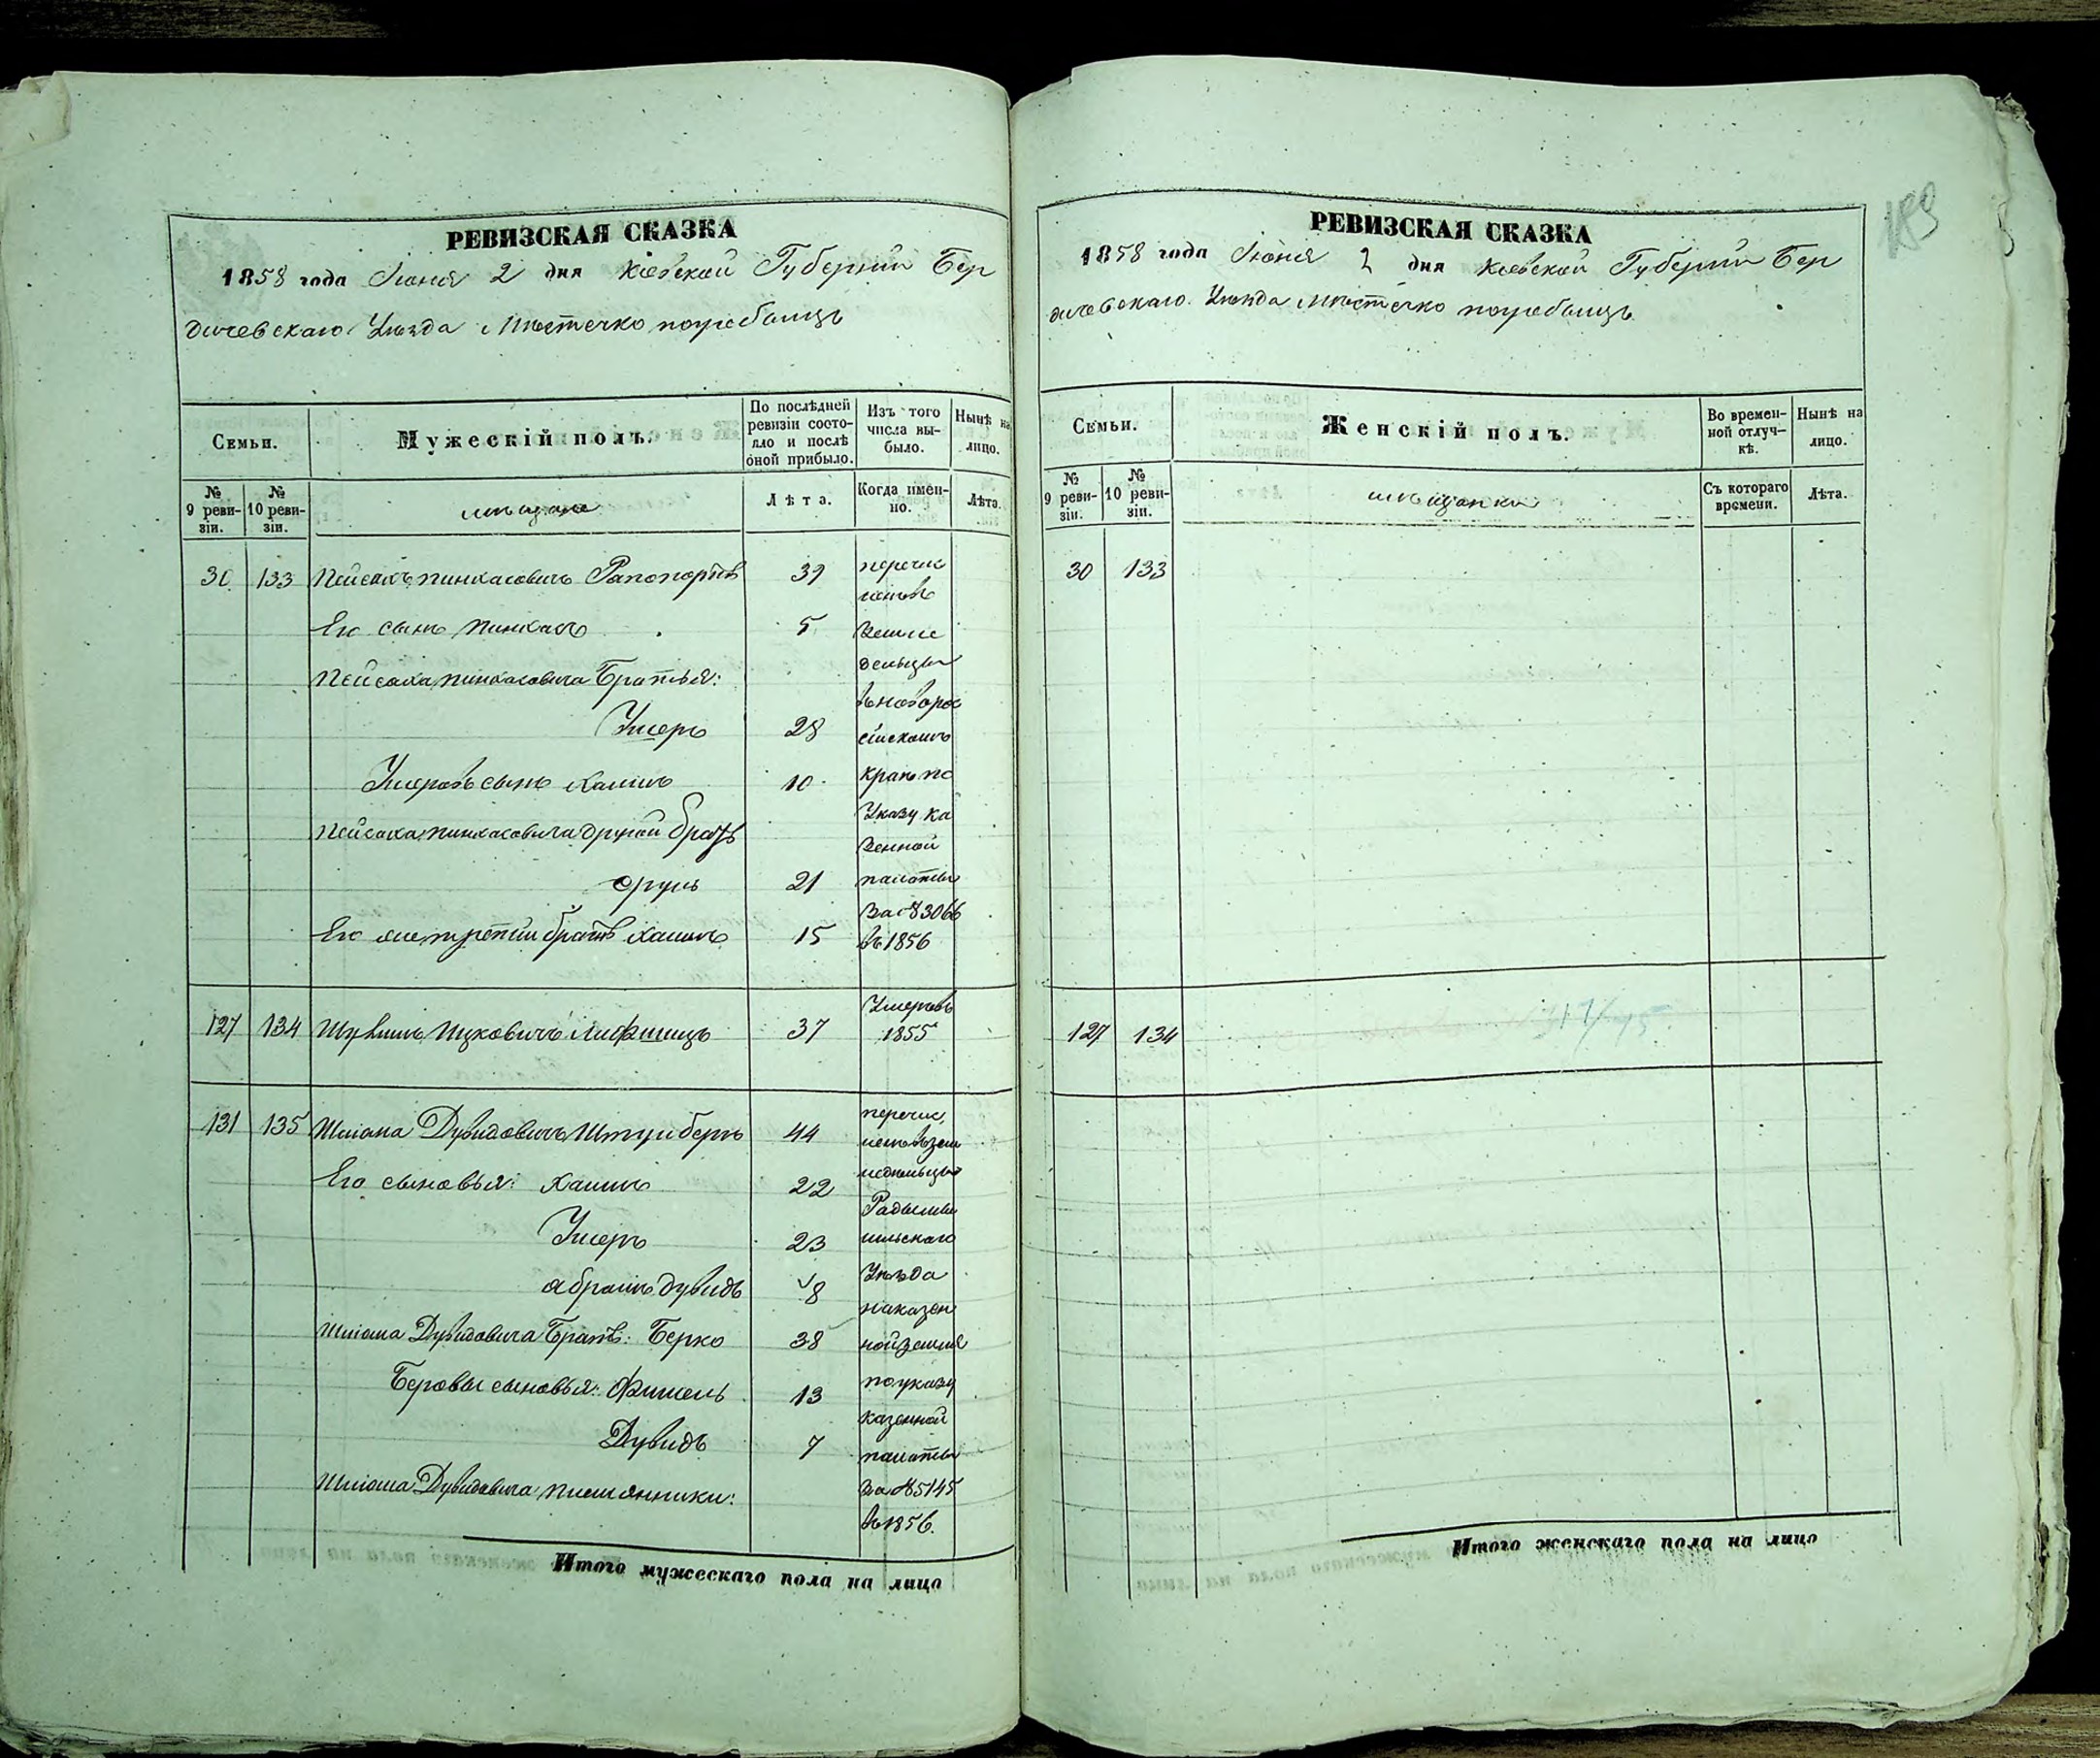 РЕВИЗСКАЯ СКАЗКА
1858 года Іюня 2 дня Кіевской Губерніи Бер
дичевскаго Уѣзда Мѣстечко погребищъ
Семьи.
Мужескій полъ.
По послѣдней ревизіи состо-
яло и послѣ
оной прибыло.
Изъ того
числа вы-
было.
Нынѣ на
лицо.
№
9 реви-
зіи.
№
10 реви-
зіи.
мѣщане
Лѣта.
Когда имен-
но.
Лѣта.
30 133 Пейсахъ Пинхасовичъ Рапопортъ 39
перечис
ленъ въ
Его сынъ Пинхасъ 5
земле
дельцы
Пейсаха Пинхасовича Братья:
въ новорос
Умеръ 28
сійскомъ
Умеровъ сынъ Хаимъ 10
краѣ по
Указу ка
Пейсаха Пинхасовича другой братъ
зенной
Сруль 21
палаты
за № 3066
Его же третій братъ Хаимъ 15
въ 1856
127 134 Ицковичъ Лифшицъ 37
Умеръ въ
1855
131 135 Шлiома Дувидовичъ Штернбергъ 44
перечис,
ленъ въ зем
Его сыновья: Хаимъ 22
ледѣльцы
Радомы
Умеръ 23
шльскаго
Уѣзда
Абрамъ Дувидъ 8
на казен
Шлiома Дувидовича Братъ: Берко 38
ной землѣ
Беровы сыновья: Фишель 13
по указу
казенной
Дувидъ 7
палаты
Шлiома Дувидовича племянники:
за № 5145
въ 1856.
Итого мужескаго пола на лицо
189
РЕВИЗСКАЯ СКАЗКА
1858 года Іюня 2 дня Кіевской Губерніи Бер
дичевскаго Уѣзда Мѣстечко погребищъ
Семьи.
Женскій полъ.
Во времен-
ной отлуч-
кѣ.
Нынѣ на
лицо.
№
9 реви-
зіи.
№
10 реви-
зіи.
мѣщанки
Съ котораго
времени.
Лѣта.
30 133
127 134
Итого женскаго пола на лицо